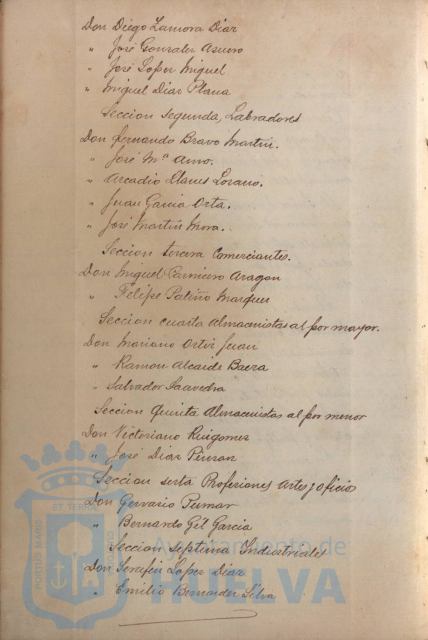 Don Diego Zamora Diaz
" José Gonzalez Asuero
" José Lopez Miguel
" Miguel Diaz Plana
Seccion segunda, Labradores
Don Fernando Bravo Martin.
" José Mª Amo.
" Arcadio Llanes Lozano.
" Juan Garcia Orta.
" José Martin Mora.
Seccion tercera Comerciantes.
Don Miguel Carnicero Aragon
" Felipe Patiño Marquez
Seccion cuarta Almacenistas al por mayor.
Don Mariano Ortiz Juan
" Ramon Alcaide Baeza
" Salvador Saavedra
Seccion Quinta Almacenistas al por menor
Don Victoriano Ruigomez
" José Diaz Pinzon
Seccion sexta Profesiones Artes y Oficios
Don Gervasio Pumar
" Bernardo Gil Garcia
Seccion Septima Industriales
Don Serafin Lopez Diaz
" Emilio Bernardez Silva
PORTUS MARIS ET TERRAE
Ayuntamiento de
HUELVA